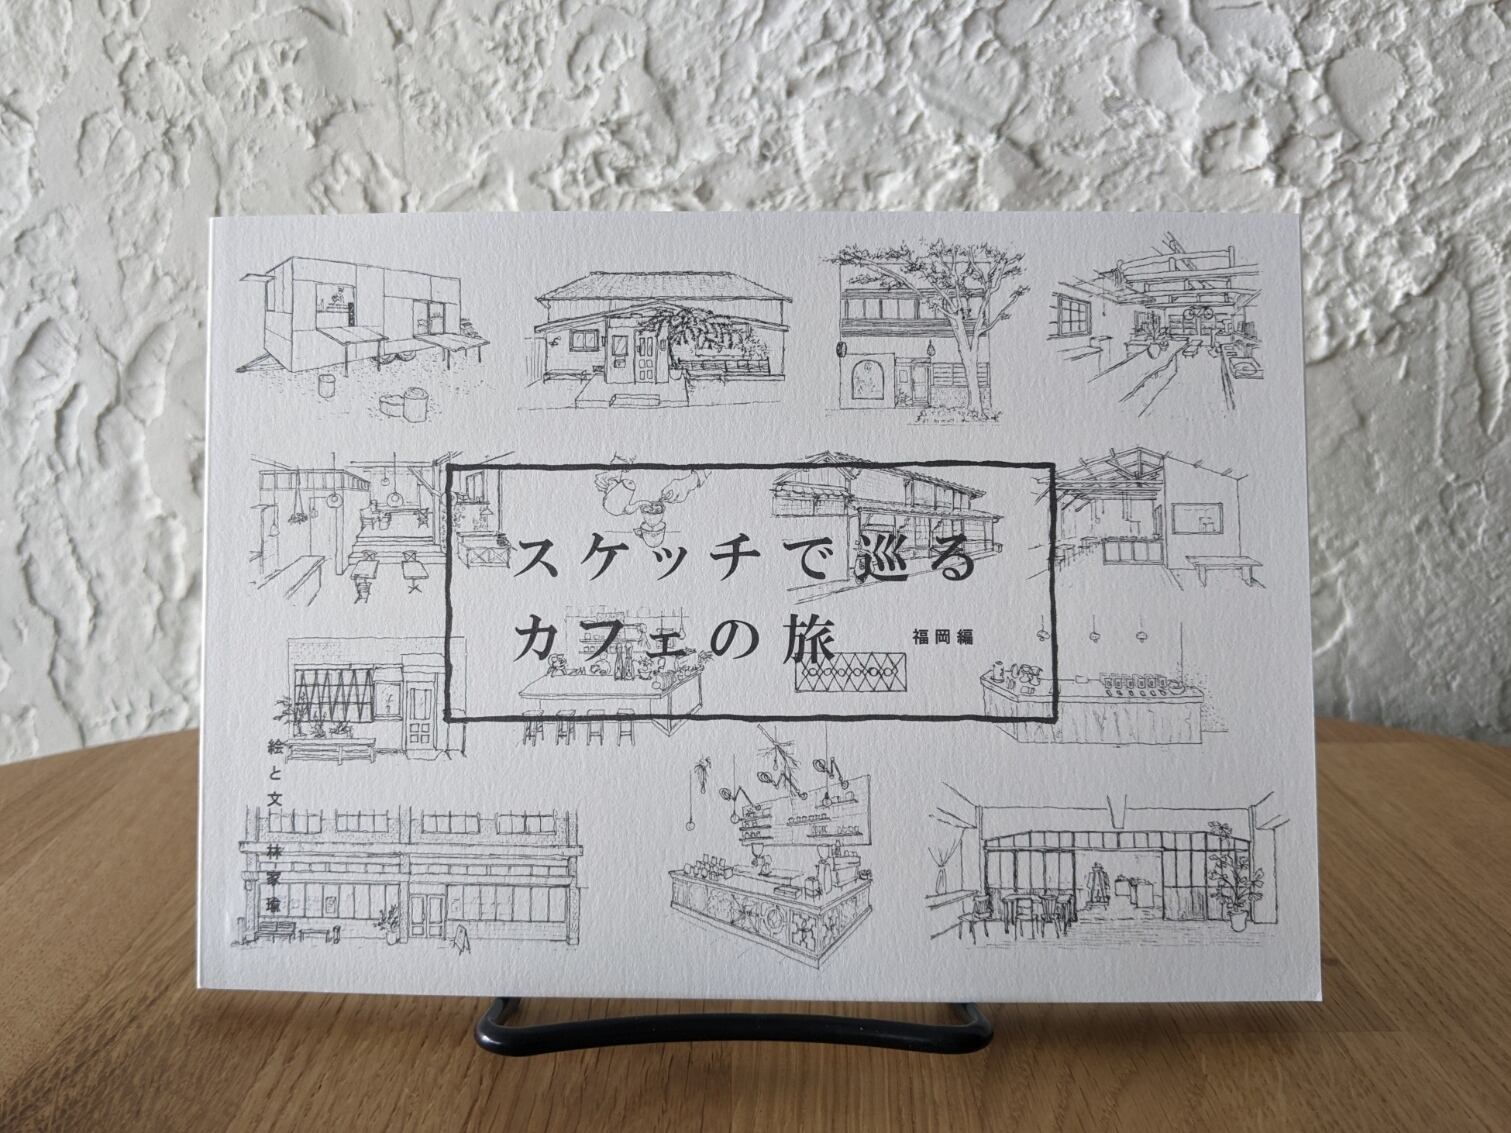 スケッチで巡る
カフェの旅 福岡編
絵と文 林家瑜